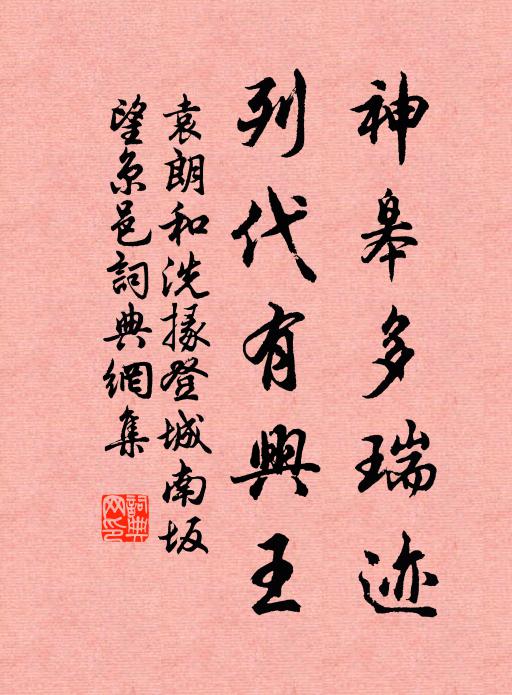 神皋多瑞迹
列代有興王
袁朗和洗掾登城南坂
望京邑詞典網集
詞典
网印